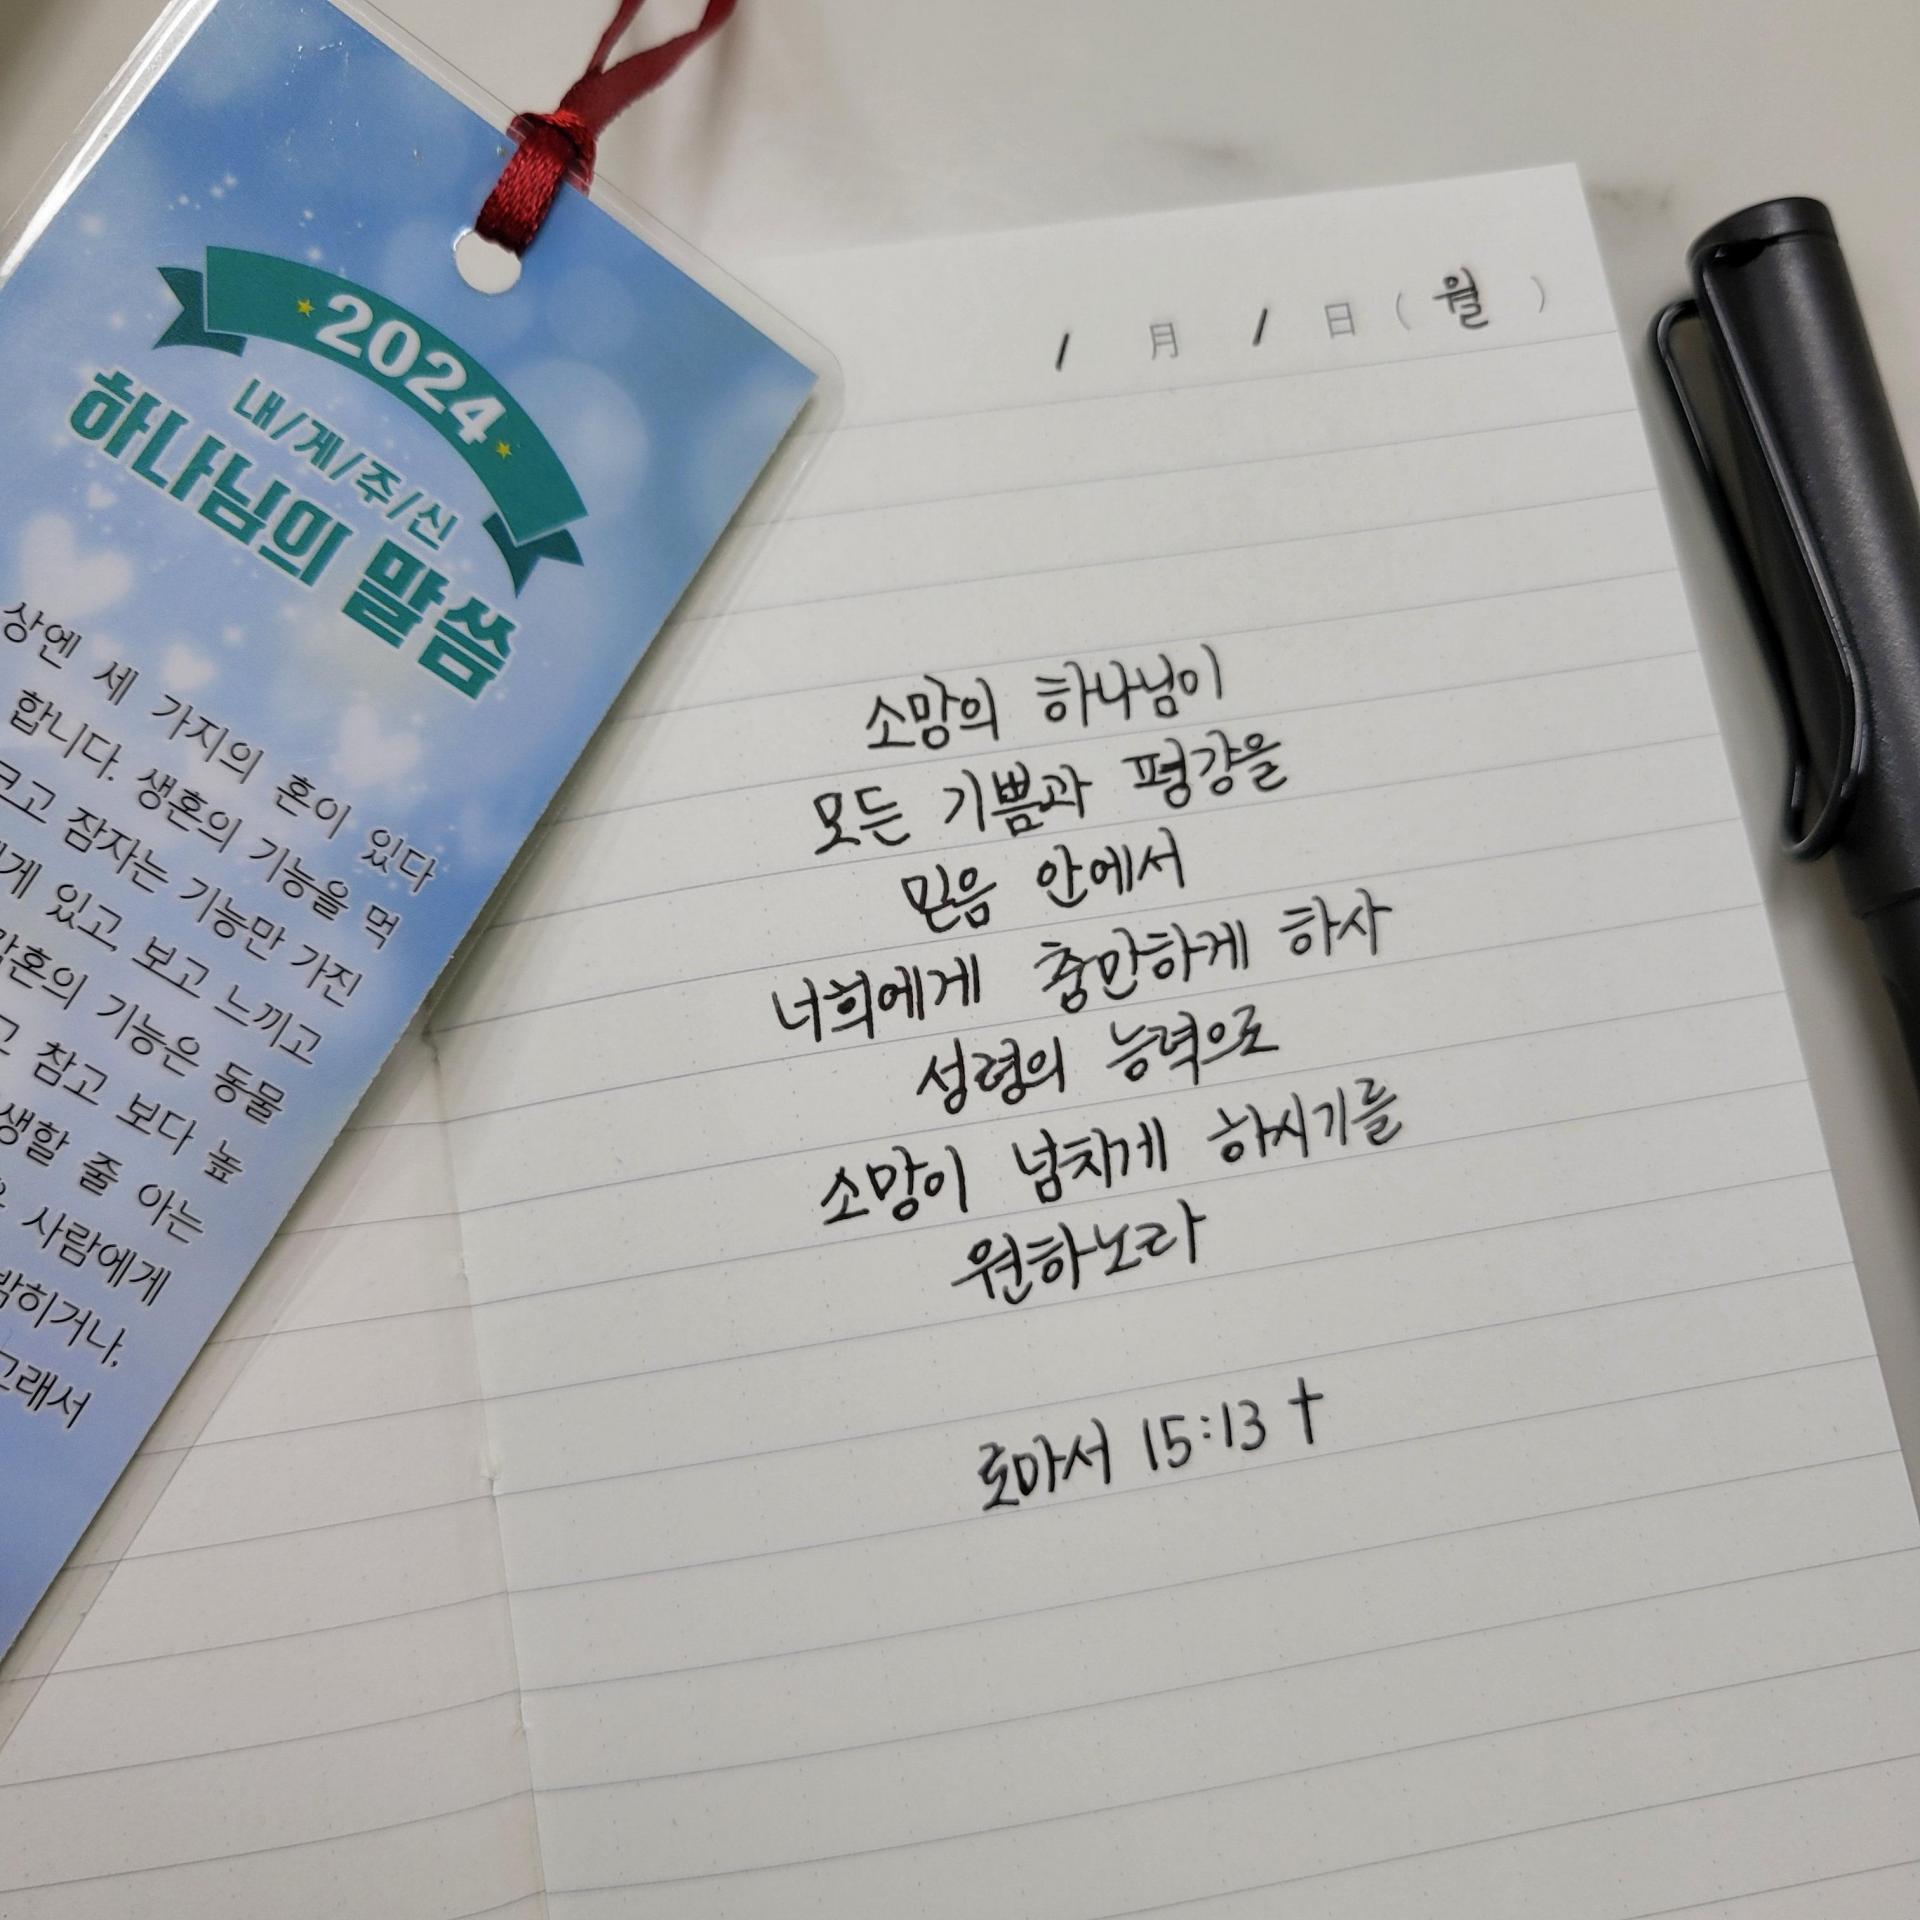 2024
내/게/주/신
하나님의 말씀
상엔 세 가지의 혼이 있다
합니다. 생혼의 기능을 먹
크고 잠자는 기능만 가진
에게 있고, 보고 느끼고
각혼의 기능은 동물
고 참고 보다 높
생할 줄 아는
사람에게
밝히거나,
그래서
1 月 1 日 ( 월 )
소망의 하나님이
모든 기쁨과 평강을
믿음 안에서
너희에게 충만하게 하사
성령의 능력으로
소망이 넘치게 하시기를
원하노라
로마서 15:13 †